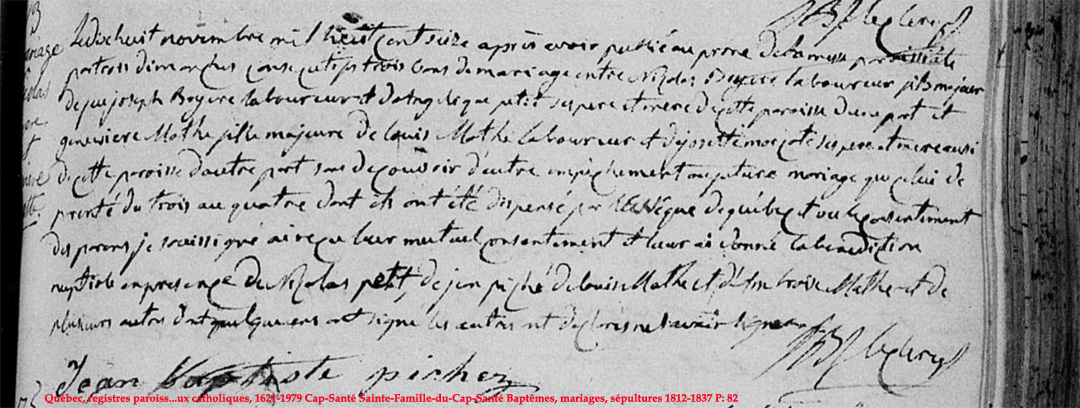 JBLeclercq
Ledixhuit novembre mil huit cent seize après avoir publié au prone de la messe paroissiale
partrois dimanches consecutifs trois bans de mariage entre Nicolas Boyere laboureur fils majeur
de feu joseph Boyere laboureur et d'angelique petit ses pere et mere de cette paroisse dune part et
genevieve Mathe fille majeure de louis Mathe laboureur et de josette ses pere et mere aussi
de cette paroisse dautre part sans decouvrir d'autre empêchement au futur mariage que celui de
parenté du trois au quatre dont ils ont été dispensé par l'Evêque de québec et vu le consentement
des parens je soussigné ai reçu leur mutuel consentement et leur ai donné la benediction
nuptiale en presence de Nicolas petit, de jean piché de louis Mathe et d'Ambroise Mathe et de
plusieurs autres dont quelques uns ont signé les autres ont declaré ne savoir signer
JBLeclercq
Jean baptiste pichez
Québec, registres paroiss...ux catholiques, 1621-1979 Cap-Santé Sainte-Famille-du-Cap-Santé Baptêmes, mariages, sépultures 1812-1837 P: 82